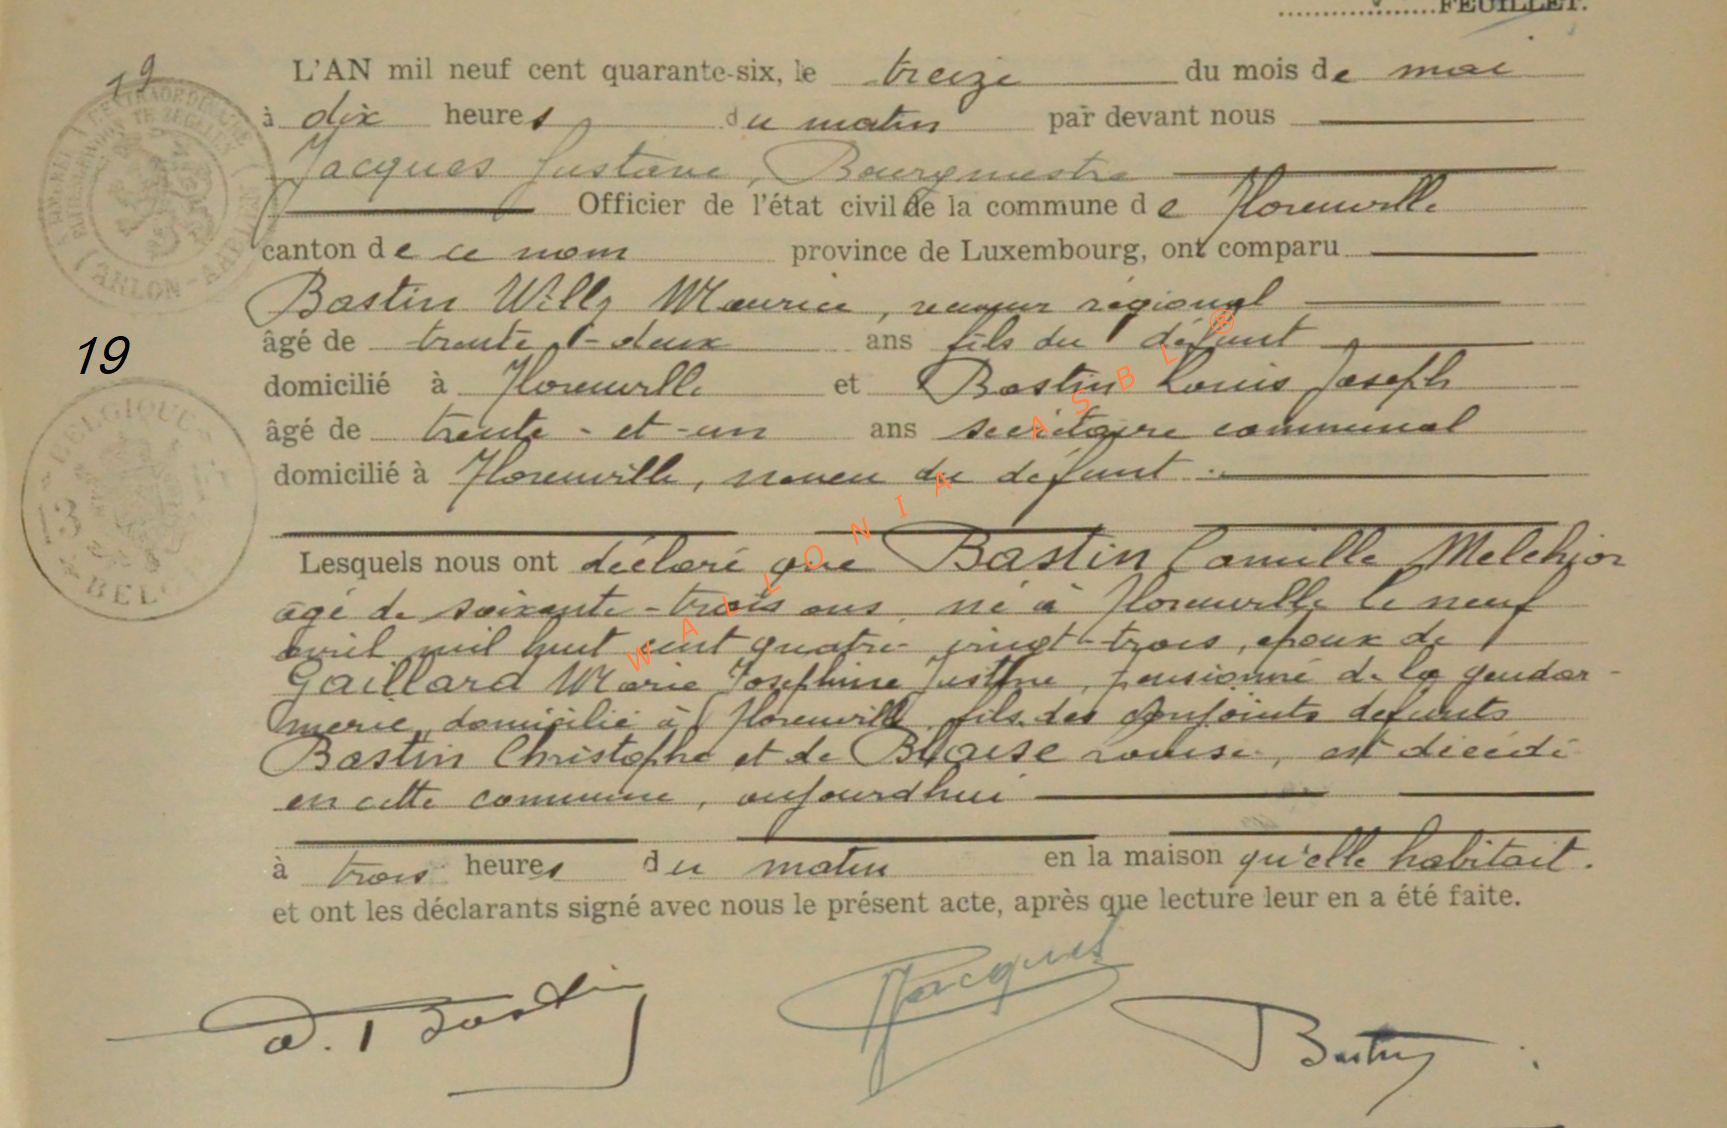 FEUILLET.
19
L'AN mil neuf cent quarante-six, le treize du mois de mai
à dix heures du matin par devant nous
Jacques Gustave, Bourgmestre
Officier de l'état civil de la commune de Florenville
canton de ce nom province de Luxembourg, ont comparu
Bastin Willy Maurice, receveur régional
âgé de trente-deux ans fils du défunt
19
domicilié à Florenville et Bastin Louis Joseph
âgé de trente-et-un ans secrétaire communal
domicilié à Florenville, neveu du défunt
Lesquels nous ont déclaré que Bastin Camille Melchior
âgé de soixante-trois ans, né à Florenville le neuf
avril mil huit cent quatre-vingt-trois, époux de
Gaillard Marie Joséphine Justine, pensionné de la gendar-
merie, domicilié à Florenville, fils des conjoints défunts
Bastin Christophe et de Blaise Louise, est décédé
en cette commune, aujourd'hui
à trois heures du matin en la maison qu'elle habitait.
et ont les déclarants signé avec nous le présent acte, après que lecture leur en a été faite.
Bastin Jacques Bastin
BELGIQUE
3
BELGIË
ARLON
WALLONIA ASBL ®